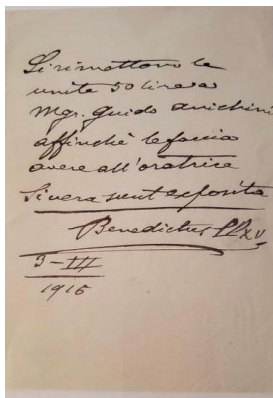 Si rimettono le
unite 50 lire a
Mgr. Guido Anichini
affinchè le faccia
avere all'oratrice
Si vera sunt exposita
Benedictus PP XV
3-III
1915